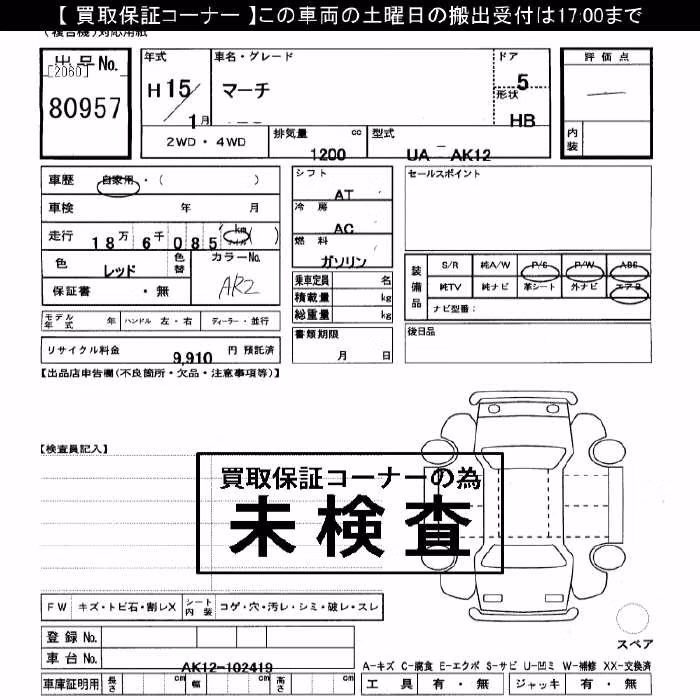 【 買取保証コーナー 】この車両の土曜日の搬出受付は17:00まで
(複合機)対応用紙
出品No. 年式 車名・グレード ドア 評価点
[2060]
80957 H15/1月 マーチ 5
形状 HB
内装
2WD・4WD 排気量 cc 1200 型式 UA-AK12
車歴 自家用・( ) シフト AT セールスポイント
車検 年 月 冷房 AC
走行 18万6千085 km ( ) 燃料 ガソリン
色 レッド 色替 カラーNo. AR2
保証書 ・無
乗車定員 名
積載量 kg
総重量 kg
装備品 S/R 純A/W P/S P/W ABS
純TV 純ナビ 革シート 外ナビ エアB
ナビ型番:
モデル年式 年 ハンドル 左・右 ディーラー・並行
書類期限 月 日
後日品
リサイクル料金 9,910 円 預託済
【出品店申告欄(不良箇所・欠品・注意事項等)】
【検査員記入】
買取保証コーナーの為
未検査
FW キズ・トビ石・割レX シート内装 コゲ・穴・汚レ・シミ・破レ・スレ
スペア
登録No.
車台No. AK12-102419
A-キズ C-腐食 E-エクボ S-サビ U-凹ミ W-補修 XX-交換済
車庫証明用 長さ cm 幅 cm 高さ cm 工具 有・無 ジャッキ 有・無